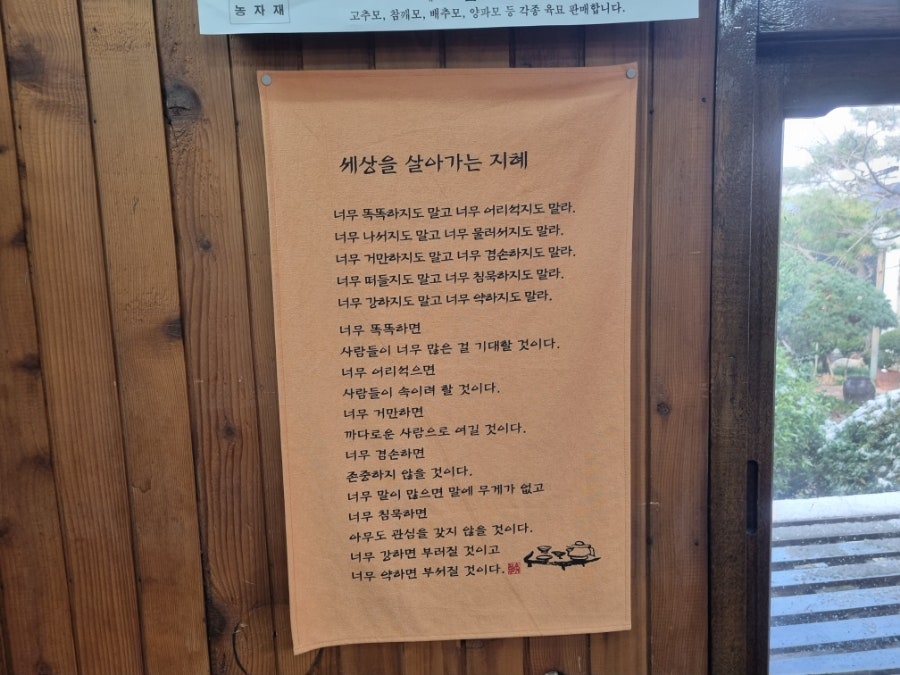 농 자 재
고추모, 참깨모, 배추모, 양파모 등 각종 육묘 판매합니다.
세상을 살아가는 지혜
너무 똑똑하지도 말고 너무 어리석지도 말라.
너무 나서지도 말고 너무 물러서지도 말라.
너무 거만하지도 말고 너무 겸손하지도 말라.
너무 떠들지도 말고 너무 침묵하지도 말라.
너무 강하지도 말고 너무 약하지도 말라.
너무 똑똑하면
사람들이 너무 많은 걸 기대할 것이다.
너무 어리석으면
사람들이 속이려 할 것이다.
너무 거만하면
까다로운 사람으로 여길 것이다.
너무 겸손하면
존중하지 않을 것이다.
너무 말이 많으면 말에 무게가 없고
너무 침묵하면
아무도 관심을 갖지 않을 것이다.
너무 강하면 부러질 것이고
너무 약하면 부서질 것이다.